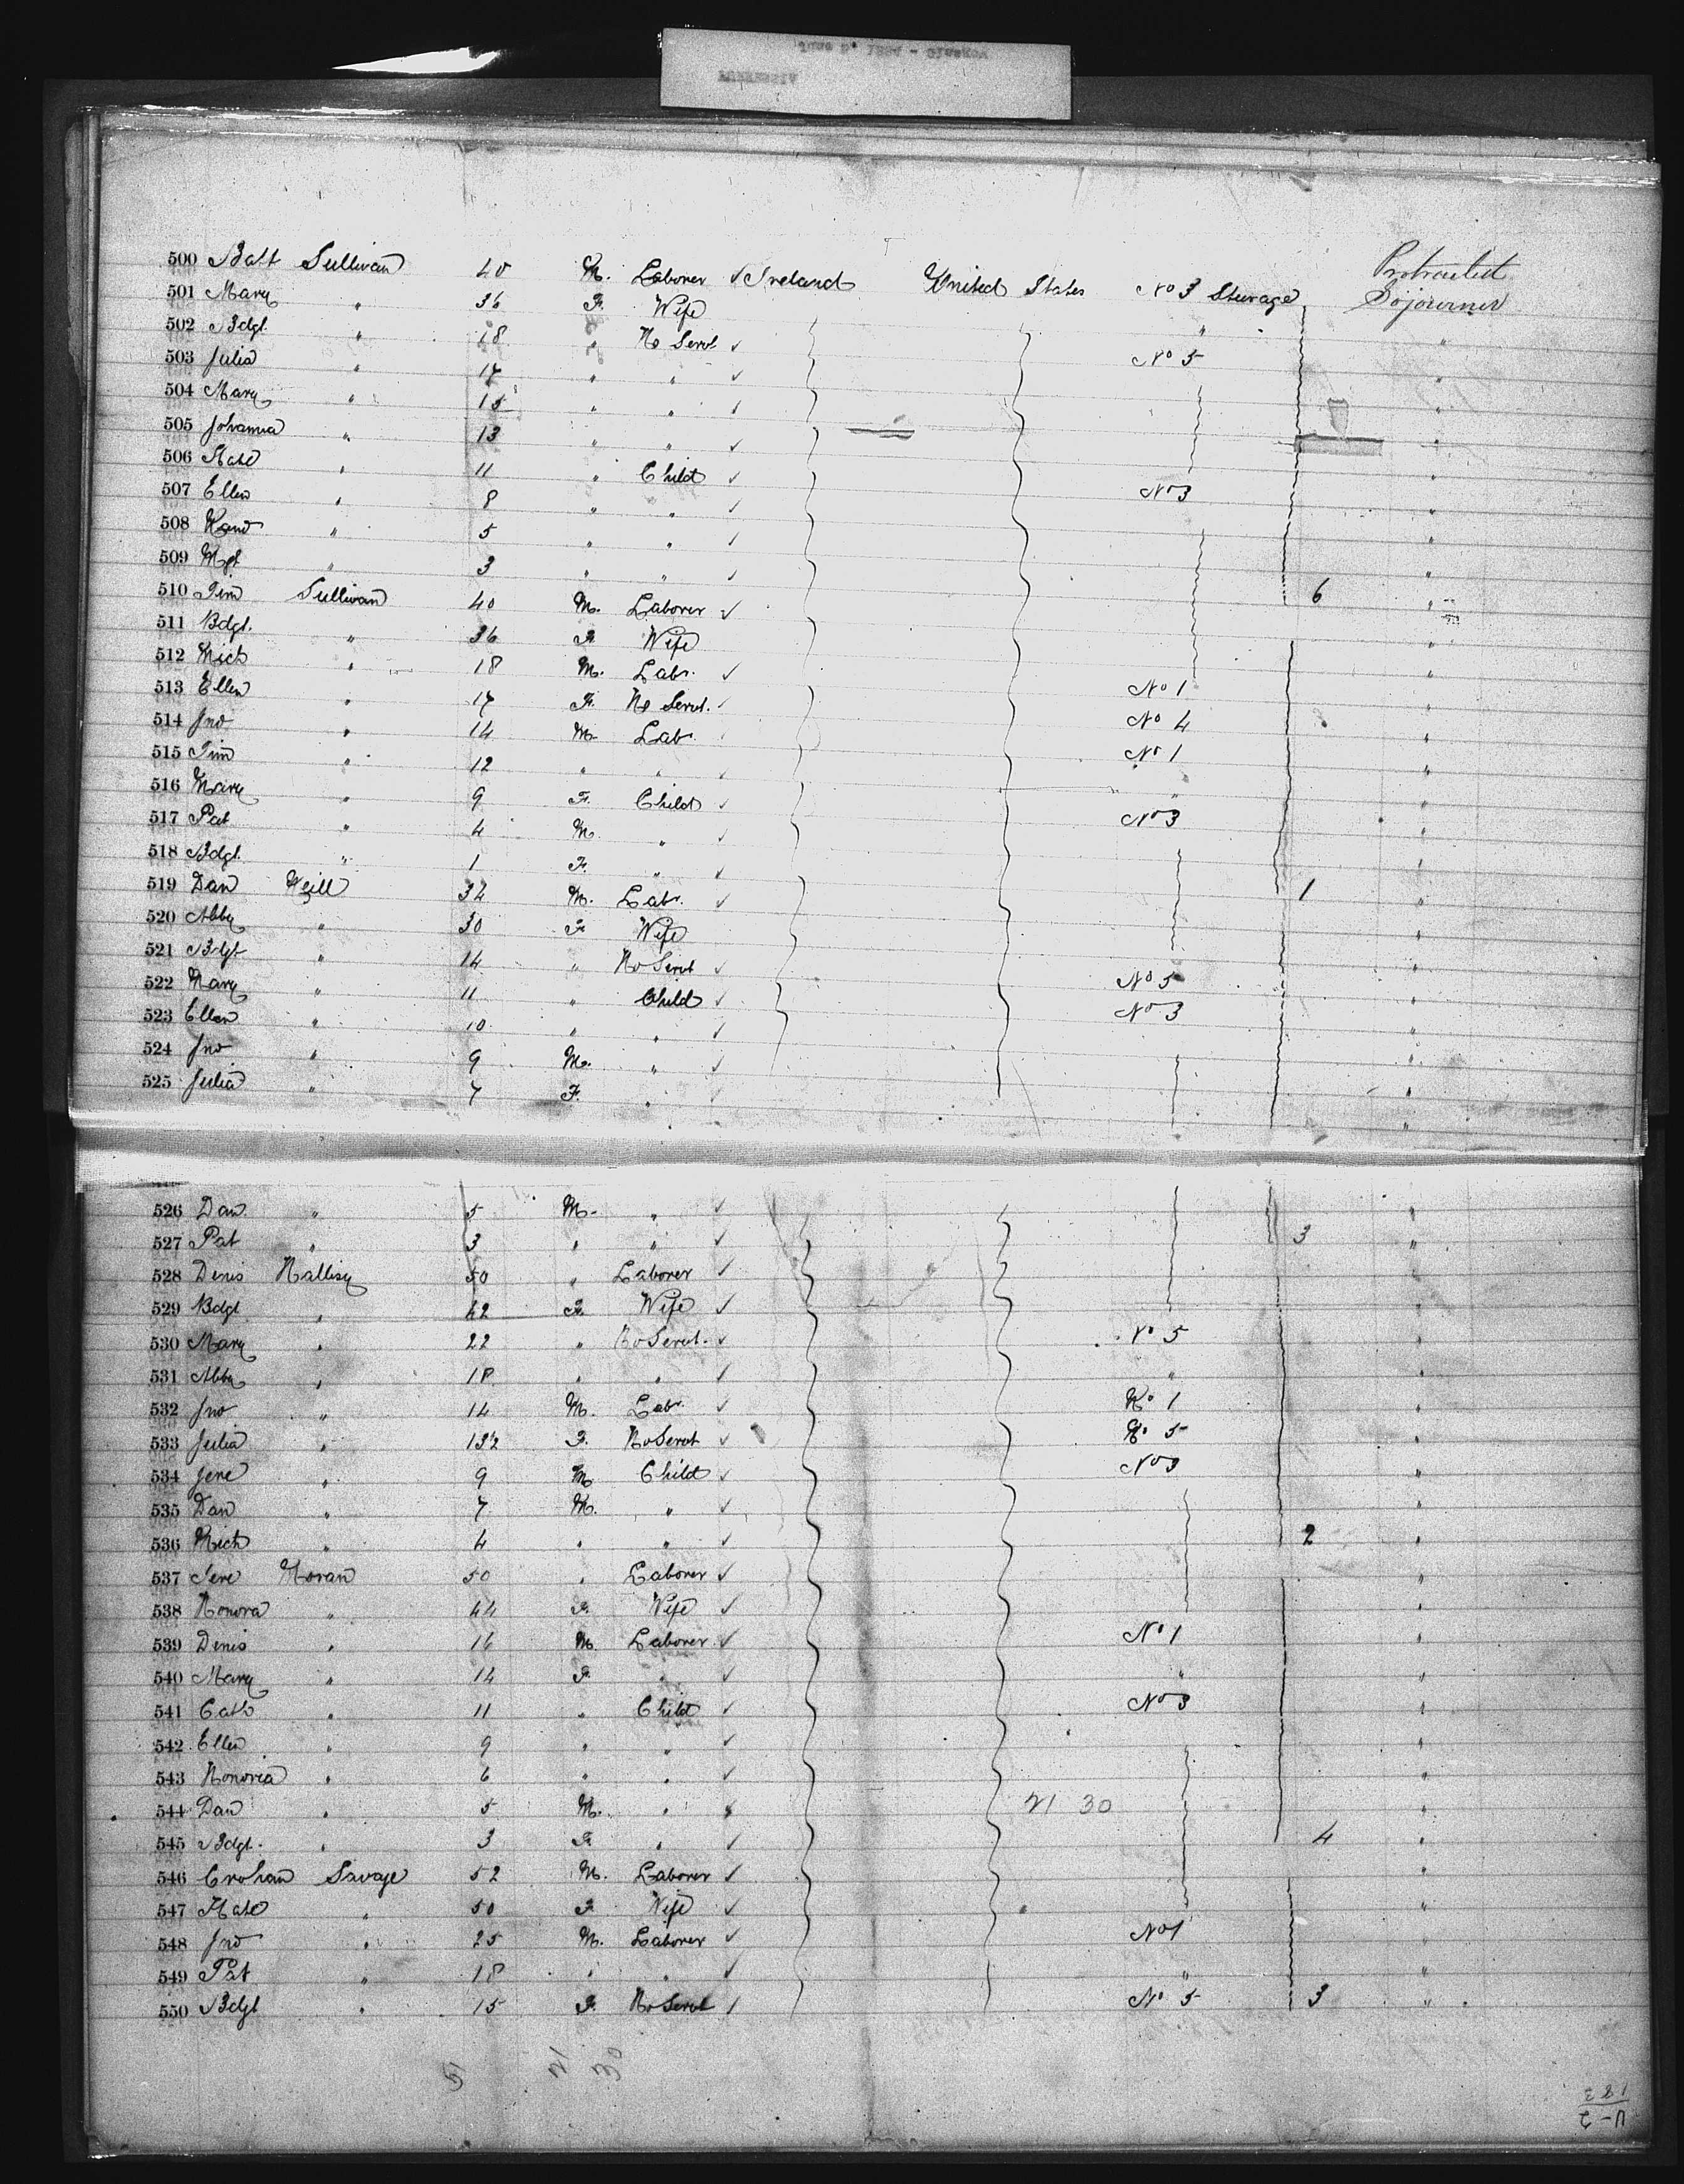 500 Batt Sullivan 40 M. Laborer ✓ Ireland United States No 3 Steerage Protracted Sojourner
501 Mary " 36 F. Wife " "
502 Bdgt. " 18 " Ho Servt ✓ No 5 "
503 Julia " 17 " " ✓ "
504 Mary " 15 " " ✓ "
505 Johanna " 13 " " ✓ "
506 Kate " 11 " Child ✓ No 3 "
507 Ellen " 8 " " ✓ "
508 Hano " 5 " " ✓ "
509 Mgt. " 3 " " ✓ 6 "
510 Tim Sullivan 40 M. Laborer ✓ "
511 Bdgt. " 36 F. Wife "
512 Mich " 18 M. Labr. ✓ No 1 "
513 Ellen " 17 F. Ho Servt. ✓ No 4 "
514 Jno " 14 M. Labr. ✓ No 1 "
515 Tim " 12 " " ✓ " "
516 Mary " 9 F. Child ✓ No 3 "
517 Pat " 4 M. " ✓ "
518 Bdgt. " 1 F. " ✓ 1 "
519 Dan Neill 34 M. Labr. ✓ "
520 Abby " 30 F. Wife "
521 Bdgt " 14 " Ho Servt ✓ No 5 "
522 Mary " 11 " Child ✓ No 3 "
523 Ellen " 10 " " ✓ "
524 Jno " 9 M. " ✓ "
525 Julia " 7 F. " ✓ "
526 Dan " 5 M. " ✓ "
527 Pat " 3 " " ✓ 3 "
528 Denis Hallisy 50 " Laborer ✓ "
529 Bdgt " 42 F. Wife ✓ "
530 Mary " 22 " Ho Servt. ✓ No 5 "
531 Abby " 18 " " ✓ " "
532 Jno " 14 M. Labr. ✓ No 1 "
533 Julia " 13½ F. Ho Servt ✓ No 5 "
534 Jere " 9 M Child ✓ No 3 "
535 Dan " 7 M. " ✓ "
536 Mich " 4 " " ✓ 2 "
537 Jere Moran 50 " Laborer ✓ "
538 Honora " 44 F. Wife ✓ "
539 Denis " 16 M Laborer ✓ No 1 "
540 Mary " 14 F. " ✓ " "
541 Cath " 11 " Child ✓ No 3 "
542 Ellen " 9 " " ✓ "
543 Honoria " 6 " " ✓ "
544 Dan " 5 M. " ✓ 21 30 "
545 Bdgt. " 3 F. " ✓ 4 "
546 Crohan Savage 52 M. Laborer ✓ "
547 Kate " 50 F. Wife ✓ "
548 Jno " 25 M. Laborer ✓ No 1 "
549 Pat " 18 " " ✓ " "
550 Bdgt " 15 F. Ho Servt ✓ No 5 3 "
21 30